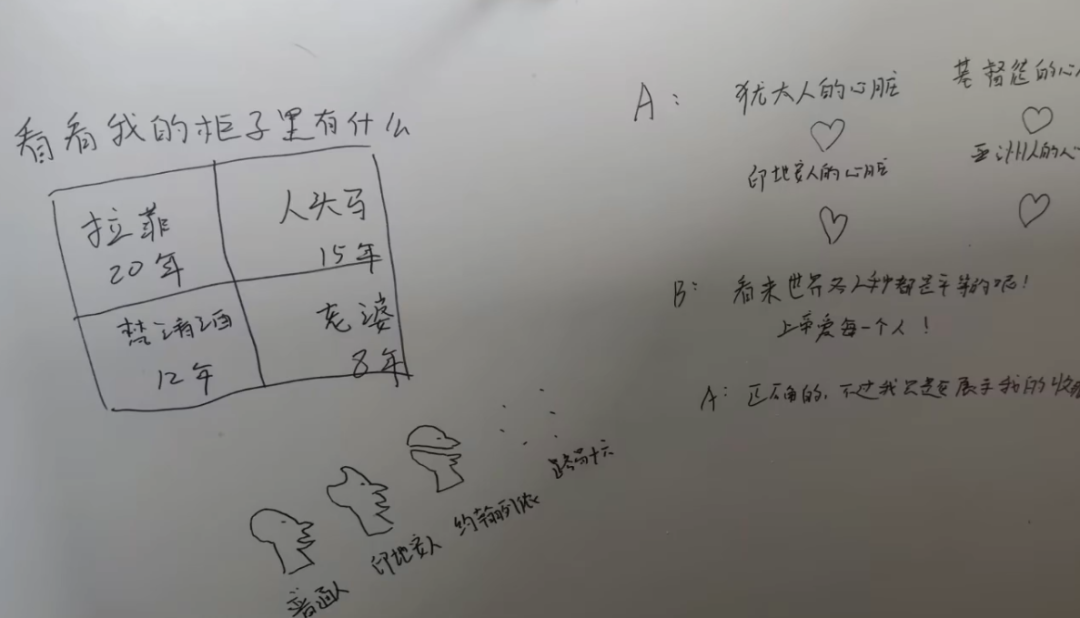 看看我的柜子里有什么
拉菲
20年
人头马
15年
梵清酒
12年
老婆
8年
普通人
印地安人
约翰列侬
路易十六
A:
犹太人的心脏
基督徒的心
印地安人的心脏
亚洲人的心
B: 看来世界各人种都是平等的呢!
上帝爱每一个人!
A: 正确的,不过我只是在展示我的收